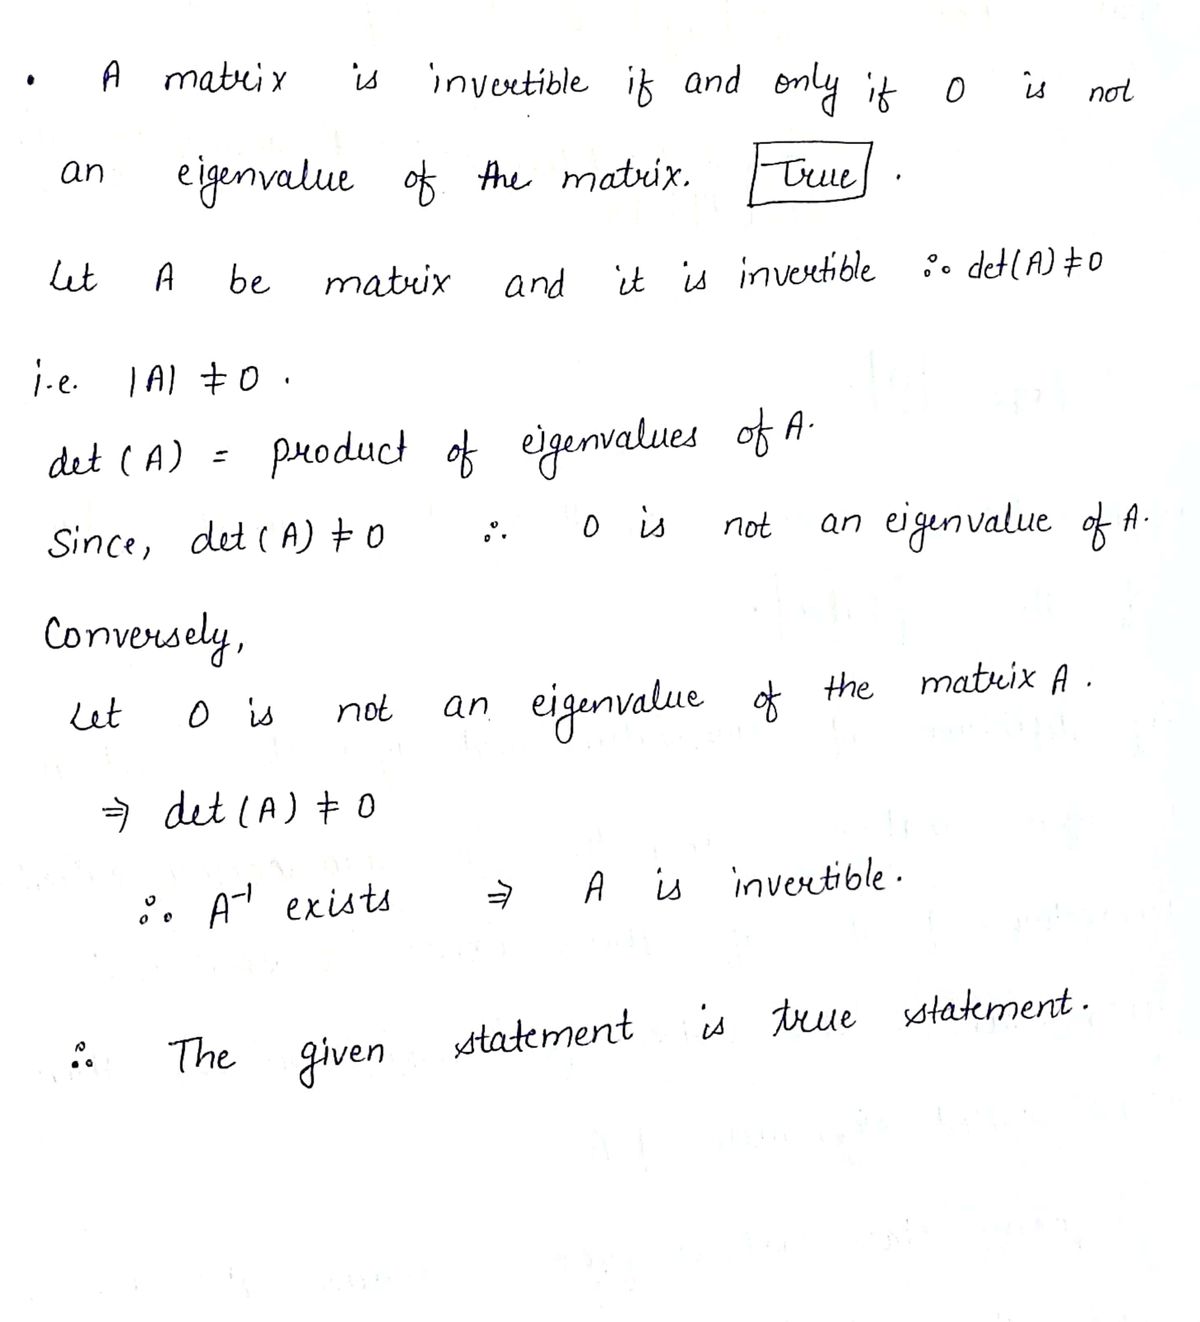 • A matrix is invertible if and only if 0 is not
an eigenvalue of the matrix. True.
Let A be matrix and it is invertible ∴ det(A) ≠ 0
i.e. |A| ≠ 0.
det (A) = product of eigenvalues of A.
Since, det (A) ≠ 0 ∴ 0 is not an eigenvalue of A.
Conversely,
Let 0 is not an eigenvalue of the matrix A.
⇒ det (A) ≠ 0
∴ A⁻¹ exists ⇒ A is invertible.
∴ The given statement is true statement.